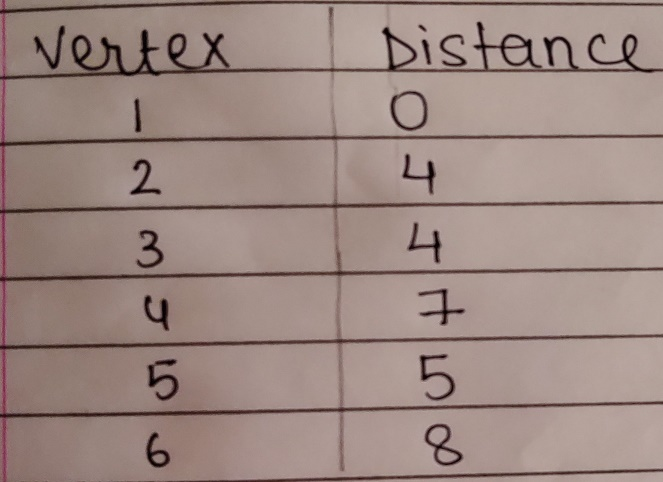 Vertex Distance
1 0
2 4
3 4
4 7
5 5
6 8